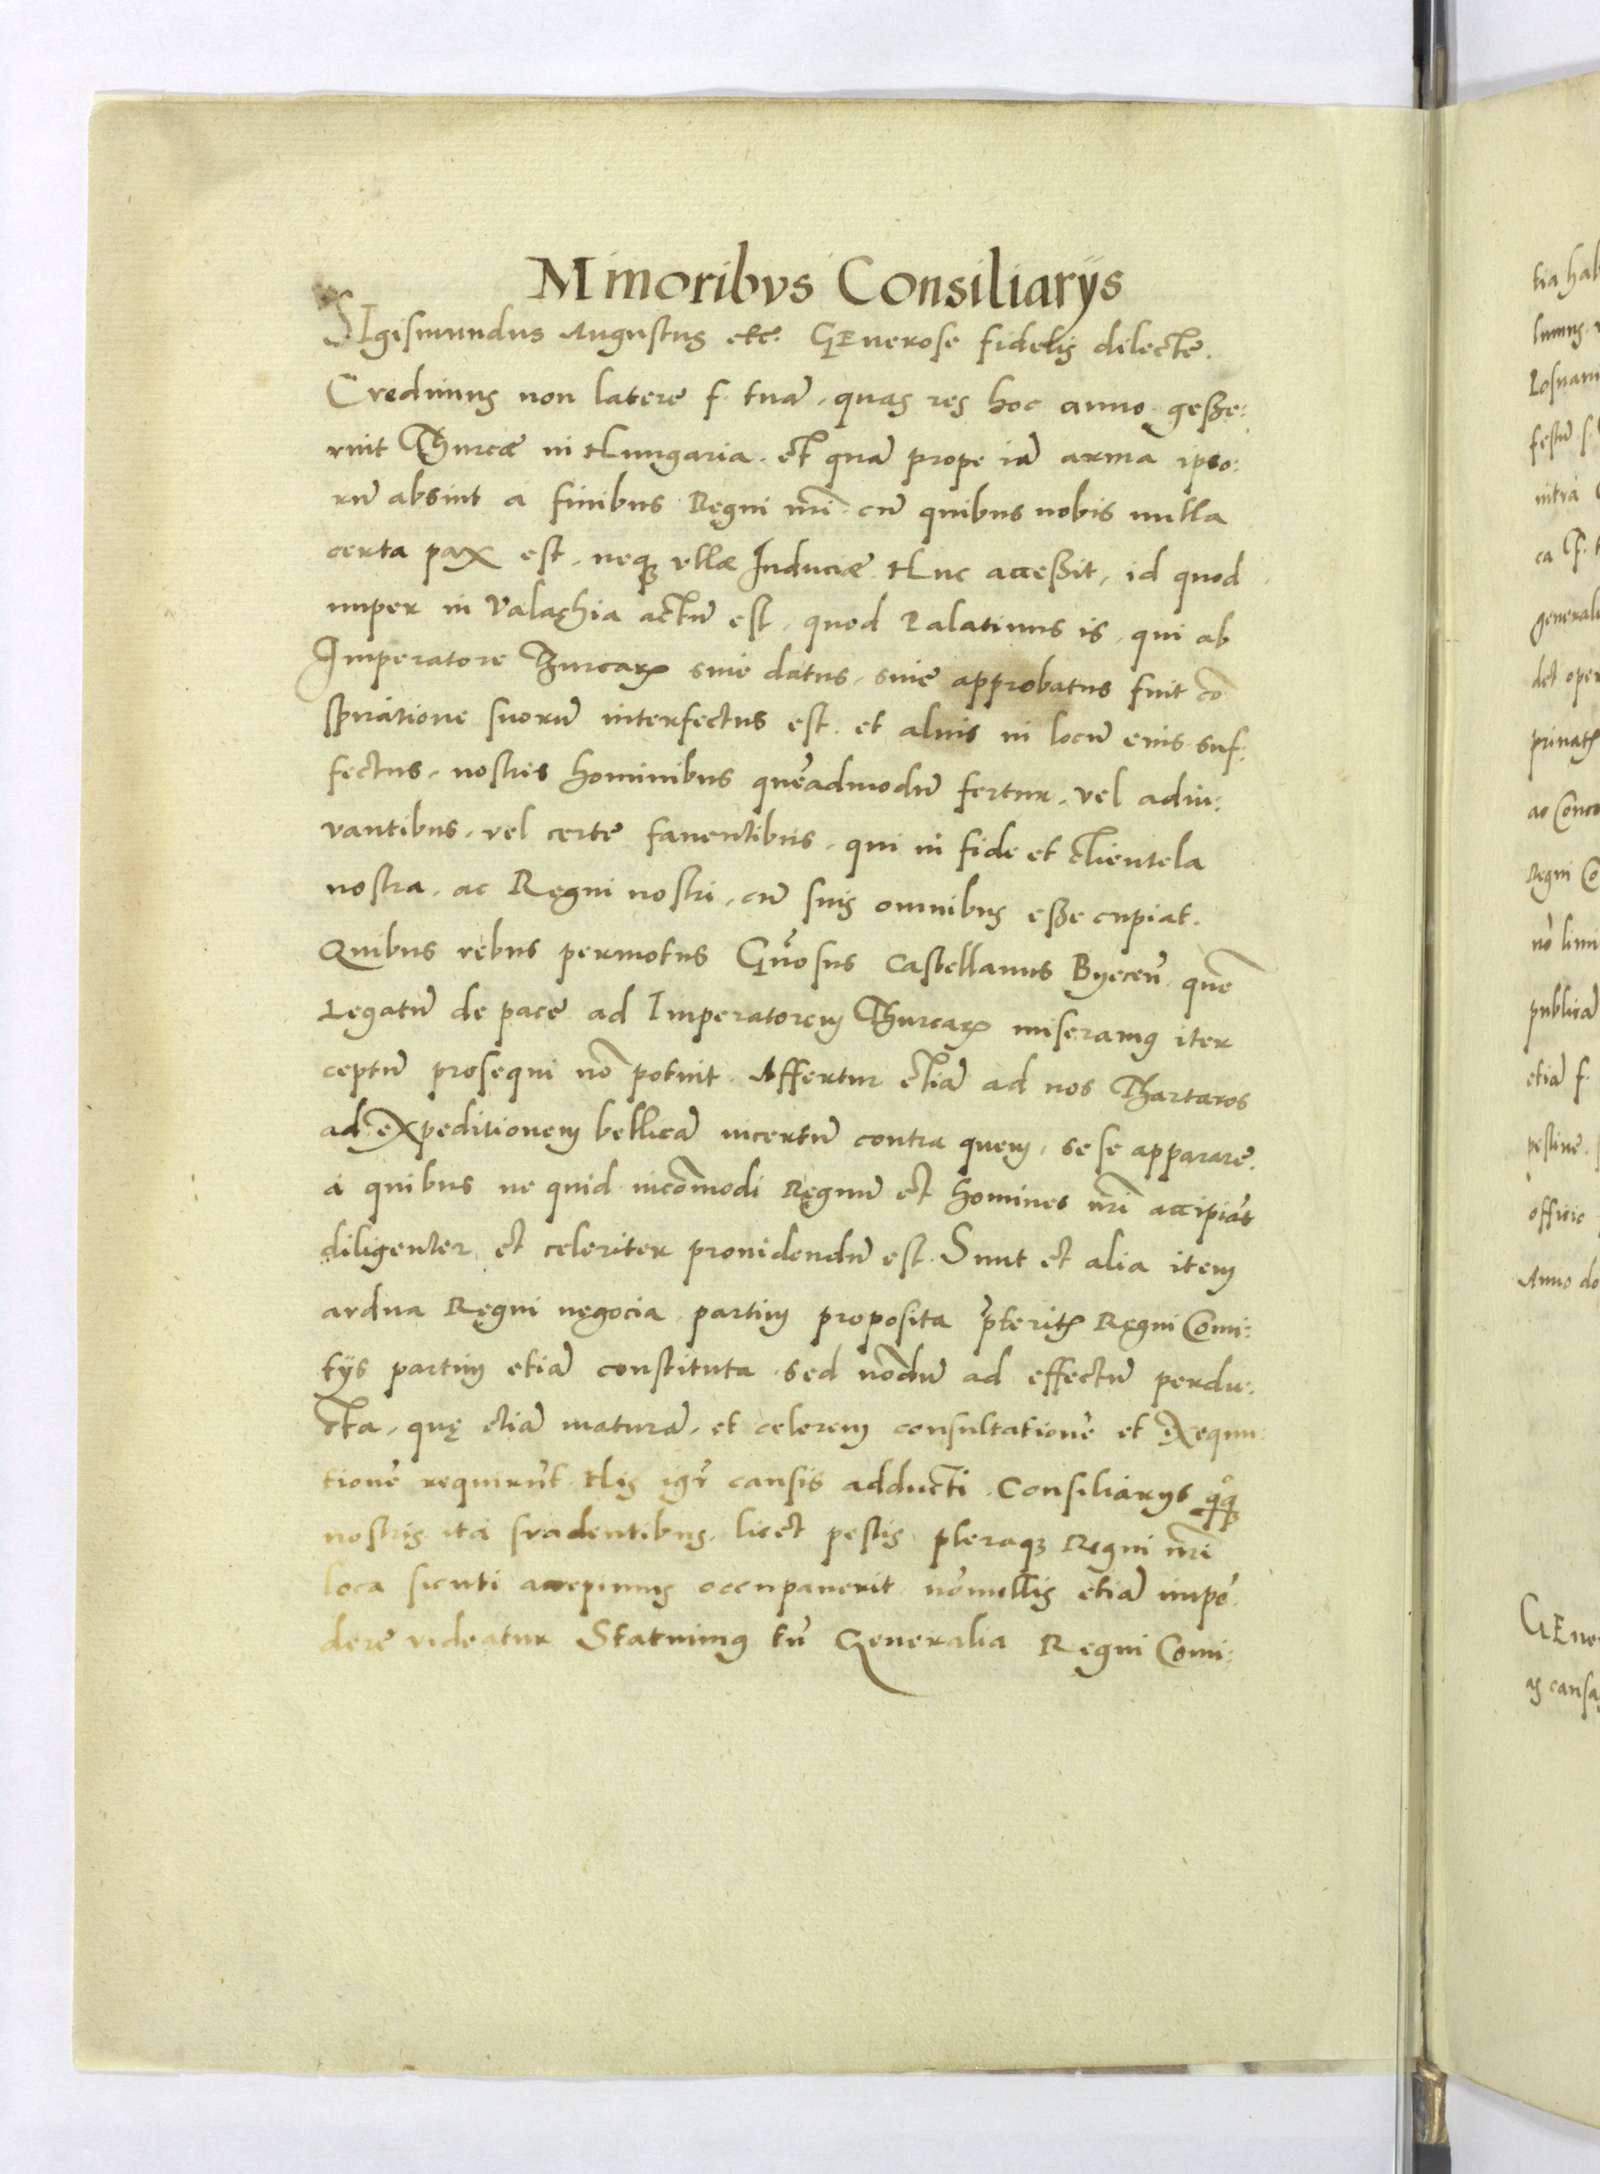 Minoribus Consiliarijs
SIgismundus Augustus etc. GEnerose fidelis dilecte.
Credimus non latere f. tuā, quas res hoc anno gesse:
rint Thurcæ in Hungaria. et quā prope iā arma ipso:
rū absint à finibus Regni nr̄i. cū quibus nobis nulla
certa pax est, neqꝫ ullæ Induciæ. Huc accessit, id quod
nuper in Valachia actū est, quod Palatinus is, qui ab
Imperatore Thurcaꝝ siue datus, siue approbatus fuit cō
spiratione suorū interfectus est. et alius in locū eius suf:
fectus, nostris hominibus quēadmodū fertur, vel adiu:
vantibus, vel certe faventibus, qui in fide et clientela
nostra, ac Regni nostri, cū suis omnibus esse cupiat.
Quibus rebus permotus Gn̄osus Castellanus Byecen̄. quē
Legatū de pace ad Imperatorem Thurcaꝝ miseramus iter
ceptū prosequi nō potuit. Affertur etiā ad nos Thartaros
ad expeditionem bellicā incertū contra quem, sese apparare.
à quibus ne quid incōmodi Regnū et homines nr̄i accipiāt
diligenter et celeriter providendū est. Sunt et alia item
ardua Regni negocia partim proposita p̄teritꝭ Regni Comi:
tijs partim etiā constituta. sed nōdū ad effectū perdu:
cta, quę etiā maturā, et celerem consultationē et exequu:
tionē requirūt. His igr̄ causis adducti. Consiliarijs qͦqꝫ
nostris ita suadentibus, licet pestis pleraqꝫ Regni nr̄i
loca sicuti accepimus occupaverit nōnullis etiā impē:
dere videatur Statuimus tn̄ Generalia Regni Comi:
tia hab
lumus
Posnani
festū s.
intra
ca F. t
general
det oper
privatꝭ
ac Conco
Regni Co
nō limi
publicā
etiā f.
pestine
officio
Anno do
GEne
as causas